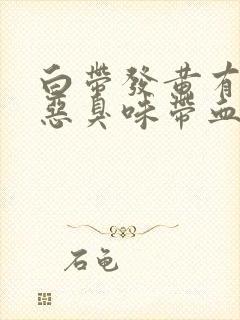 白帶發黃有
惡臭味帶血
石龟